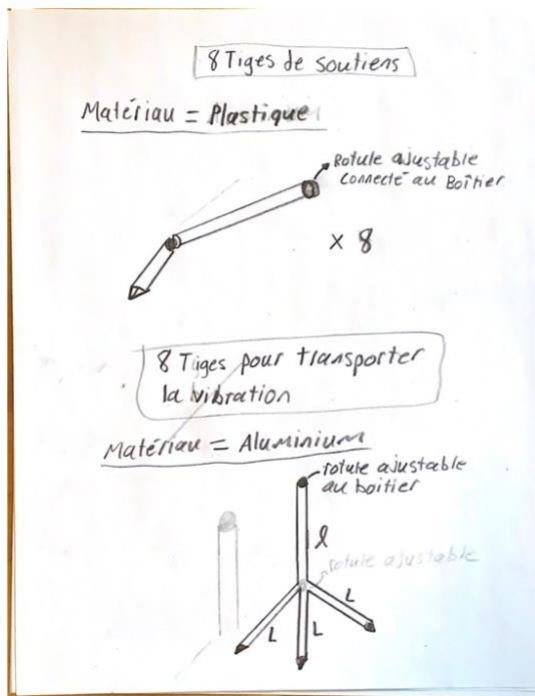 8 Tiges de soutiens
Matériau = Plastique
Rotule ajustable
connecté au Boîtier
x 8
8 Tiges pour transporter
la vibration
Matériau = Aluminium
rotule ajustable
au boitier
l
rotule ajustable
L
L
L